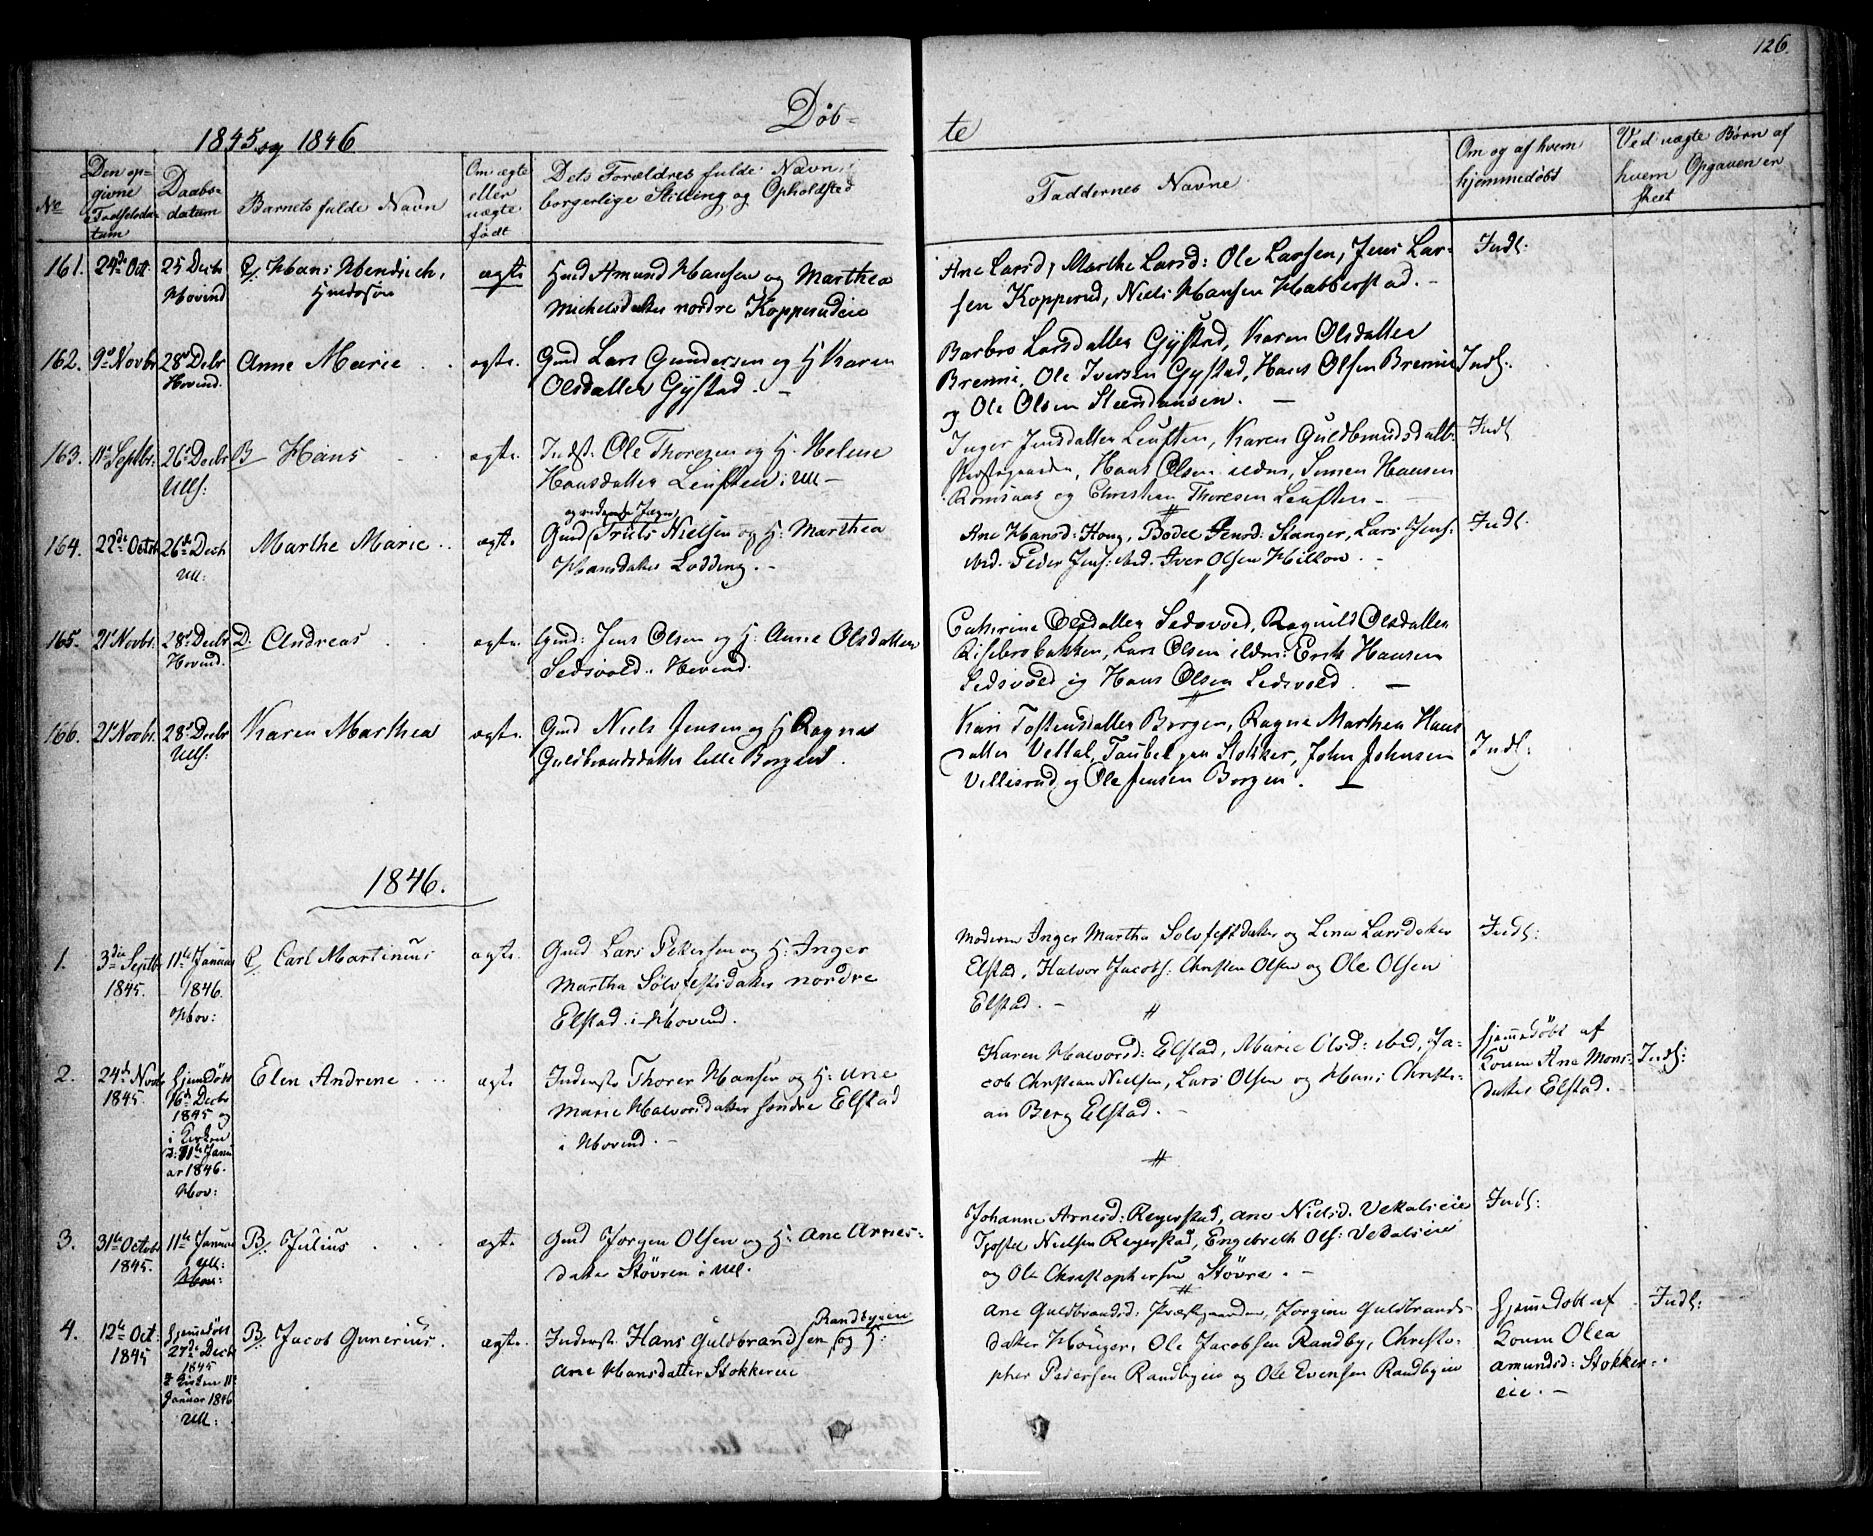 126.
Døb-
te
1845 og 1846
No
Den op-
givne
Fødselsda-
tum
Daabs-
datum
Barnets fulde Navn
Om ægte
eller
uægte
født
Dets Forældres fulde Navn,
borgerlige Stilling og Opholdsted
Faddernes Navne
Om og af hvem
hjemmedøbt
Ved uægte Børn af
hvem Opgaven er
skeet
161. 24de Oct: 25 Decb Hovind Hans Hendrich, ægte Amund Hansen og Marthea
Michelsdatter nordre Kopperudeie
Ane Larsd, Marthe Larsd: Ole Larsen, Jens Lar-
sen Kopperud, Niels Hansen Habberstad. -
Indf:
162. 9e Novbr 28e Decbr Hovind. Anne Marie . . ægte. Gmd Lars Gundersen og H Karen
Olsdatter Gystad. -
Barbro Larsdatter Gystad, Karen Olsdatter
Brenni, Ole Iversen Gystad, Hans Olsen Brenni
og Ole Olsen
Indf:
163. 11e Septbr. 26e Decbr Ulls: B Hans . . ægte. Indst. Ole Thoresen og H. Helene
Hansdatter Leufsten i Ull -
Inger Jensdatter Leufsten, Karen Guldbrandsdatt:
Hans Olsen Simen Hansen
Romsaas og Christian Thoresen Leufsten -
Indf
164. 22de Octob 26de Decb Ull: Marthe Marie . . ægte Gmd Truls Nielsen og H: Marthea
Hansdatter Lodding. -
Ane Hansd: Haug, Bodel Jensd: Stanger, Lars Jens:
ibid. Peder Jens: ibid. Iver Olsen Hilton . -
Indf.
165. 21e Novbr. 28e Decbr Hovind. D: Andreas . . ægte. Gmd: Jens Olsen og H: Anne Olsdatter
Ledsvold. Hovind.
Cathrine Olsdatter Ledsvold, Ragnild Olsdatter
Risebrobakken, Lars Olsen Erik Hansen
Ledsvold og Hans Olsen Ledsvold. -
166. 21e Novbr. 28e Decbr Ulls: Karen Marthea ægte. Gmd Niels Jensen og H Ragne
Guldbrandsdatter lille Borgen.
Kari Tostensdatter Borgen, Ragne Marthea Hans
datter Vettal, Stokker, John Johnsen
Villerud og Ole Jensen Borgen. -
Indf:
1846.
1. 3die Septbr 1845. 11te Januar 1846. Hov: C. Carl Martinus ægte. Gmd Lars Pedersen og H: Inger
Martha Sølvfestsdatter nordre
Elstad i Hovind.
Moderen Inger Martha Solvfestdatter og Lena Larsdatter
Elstad, Halvor Jacobs: Christen Olsen og Ole Olsen
Elstad. -
Indf:
2. 24de Novbr 1845. Hjemdøbt 16de Decbr 1845 og i Kirken d: 11te Janu ar 1846. Hov: Elen Andrine . . . ægte Inderste Thorer Hansen og H: Ane
Marie Halvorsdatter søndre Elstad
i Hovind. -
Karen Halvorsd: Elstad, Marie Olsd: ibid, Ja-
cob Christian Nielsen, Lars Olsen og Hans Christi-
an Berg Elstad. -
hjemmedøbt af
Konen Ane Mons-
datter Elstad. -
Indf:
3. 31te Octobr 1845. 11te Januar Ull: Hov: B. Julius . . . ægte Gmd Jørgen Olsen og H: Ane Arnes-
datter Støvren i Ull.
Johanne Arnesd: Regerstad, Ane Nielsd. Vekalseie
Nielsen Regerstad, Engebreth Ols: Vedalseie
og Ole Christophersen Støvre. -
Indf:
4. 12te Oct: 1845 hjemdøbt 27de Decb 1845 i Kirken 11te Januar 1846 Ull: B. Jacob Gunerius. ægte. Inderste Hans Guldbrandsen Randbyeie og H:
Ane Hansdatter Stokkereie
Ane Guldbrandsd: Præstgaarden, Jørgine Guldbrands-
datter Houger, Ole Jacobsen Randby, Christo-
pher Pedersen Randbyeie og Ole Evensen Randbyeie
hjemmedøbt af
Konen Olea
Amundsd: Stokker-
eie. -
Indf: